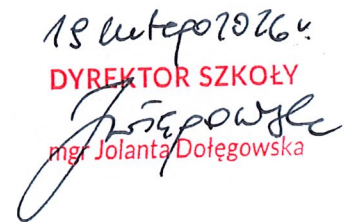 19 lutego 2026 r.
DYREKTOR SZKOŁY
mgr Jolanta Dołęgowska